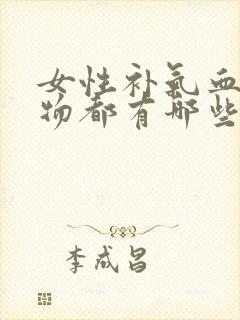 女性补氣血
物都有哪些
李成昌